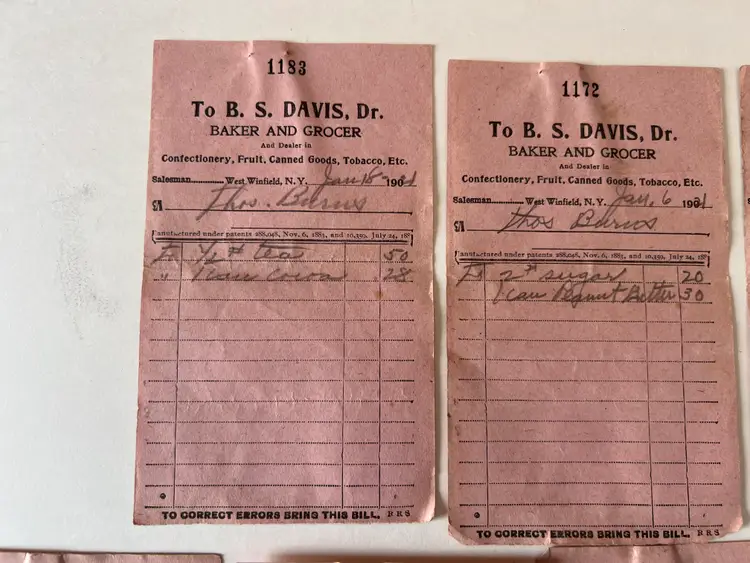 1183
To B. S. DAVIS, Dr.
BAKER AND GROCER
And Dealer in
Confectionery, Fruit, Canned Goods, Tobacco, Etc.
Salesman.............West Winfield, N. Y. Jan 18 1921
Thos. Burns
anufactured under patents 288,048, Nov. 6, 1883, and 10,359, July 24, 188
To 1/2 # tea 50
" 1 can cocoa 28
TO CORRECT ERRORS BRING THIS BILL. R R S
1172
To B. S. DAVIS, Dr.
BAKER AND GROCER
And Dealer in
Confectionery, Fruit, Canned Goods, Tobacco, Etc.
Salesman.............West Winfield, N. Y. Jan. 6 1921
Thos Burns
anufactured under patents 288,048, Nov. 6, 1883, and 10,359, July 24, 188
To 2# sugar 20
1 can Peanut Butter 30
TO CORRECT ERRORS BRING THIS BILL. R R S